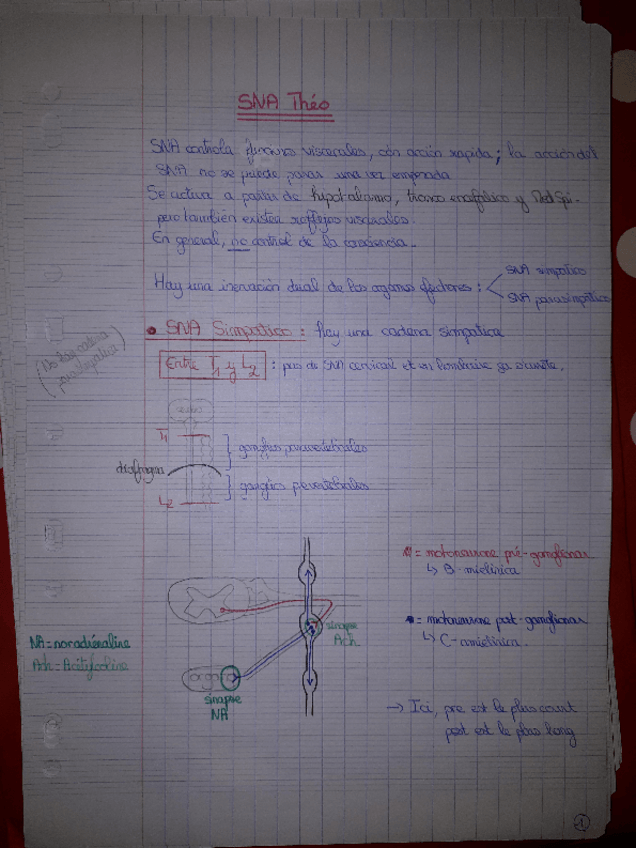 SNA Théo
SNA controla funciones viscerales, con acción rapida; la acción del
SNA no se puede parar una vez empezada
Se activa a partir de hypotalamo, tronco encefálico y Med Spi.
pero también existen reflejos viscerales.
En general, no control de la consciencia.
Hay una inervación dual de los organos efectores :
SNA simpatico
SNA parasimpatico
• SNA Simpatico : Hay una cadena simpatica
(No hay cadena
parasimpatica)
Entre T1 y L2 : pas de SNA cervical et en lombaire ça s'arrête.
T1
ganglios paravertebrales
diafragma
ganglios prevertebrales
L2
= motoneurone pré-ganglionar
↳ B-mielinica
sinapse
Ach
= motoneurone post-ganglionar
↳ C-amielinica.
NA = noradrénaline
Ach = Acétylcholine
sinapse
NA
→ Ici, pre est le plus court
post est le plus long
1